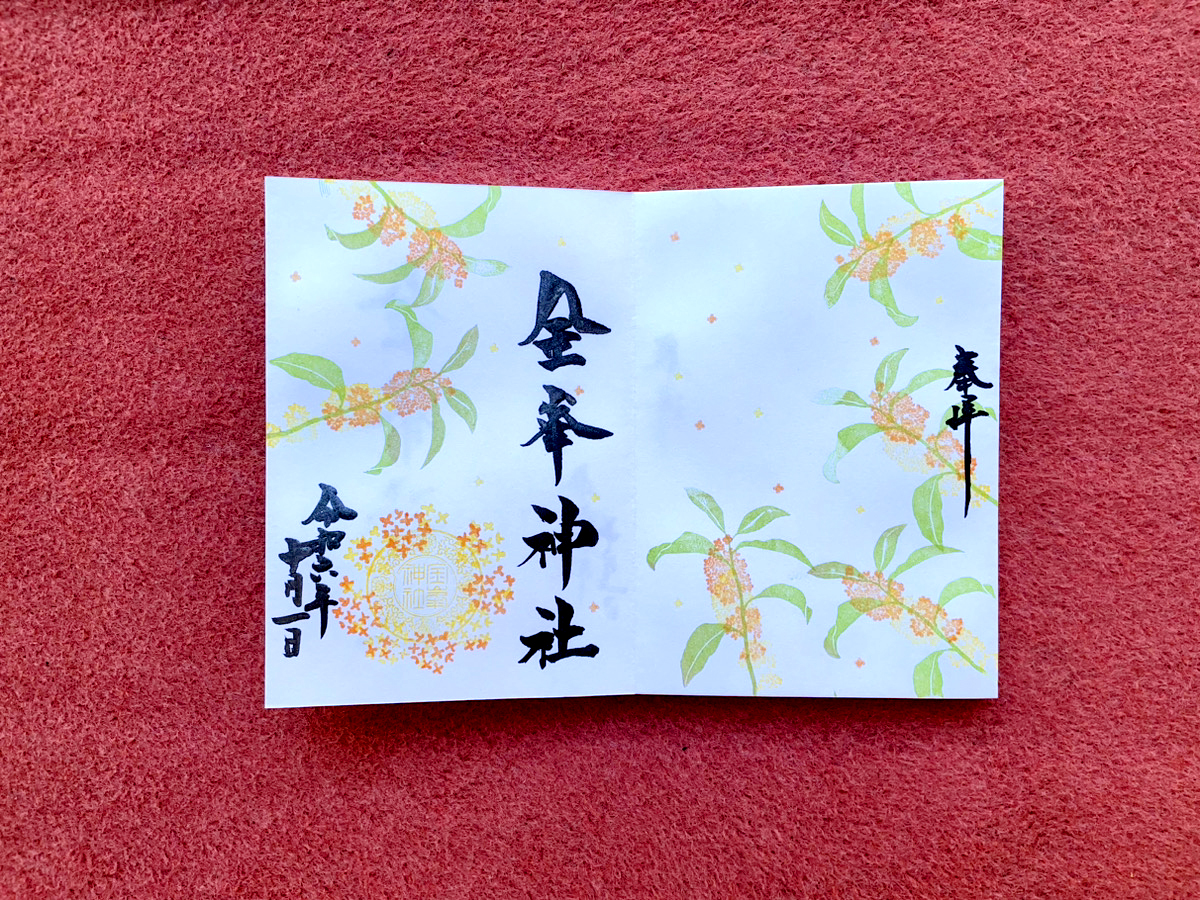 奉拝
金峯神社
令和六年
十月一日
金峯
神社